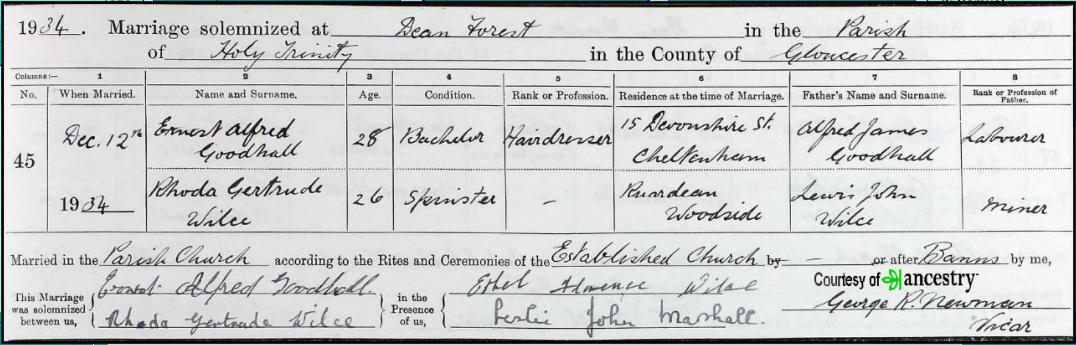 1934. Marriage solemnized at Dean Forest in the Parish
of Holy Trinity in the County of Gloucester
Columns:— 1 2 3 4 5 6 7 8
No. When Married. Name and Surname. Age. Condition. Rank or Profession. Residence at the time of Marriage. Father's Name and Surname. Rank or Profession of Father.
45 Dec. 12th Ernest Alfred Goodhall 28 Bachelor Hairdresser 15 Devonshire St. Cheltenham Alfred James Goodhall Labourer
1934 Rhoda Gertrude Wilce 26 Spinster – Ruardean Woodside Lewis John Wilce Miner
Married in the Parish Church according to the Rites and Ceremonies of the Established Church by – or after Banns by me,
Courtesy of ancestry
This Marriage was solemnized between us, Ernest Alfred Goodhall. in the Presence of us, Ethel Florence Wilce George R. Newman
Rhoda Gertrude Wilce Leslie John Marshall. Vicar